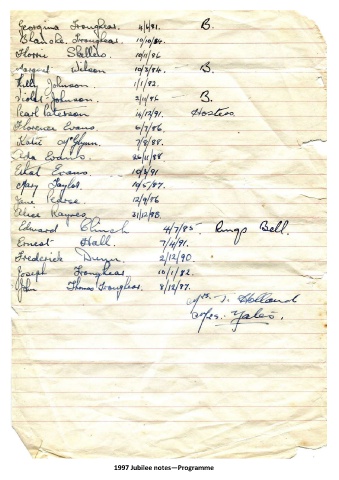 Georgina Troughear. 4/6/81. B.
Blanche Troughear. 10/10/84.
Florrie Skellern. 10/11/86
Margaret Wilson 10/3/84. B.
Lilly Johnson. 1/1/82.
Violet Johnson. 2/11/86 B.
Pearl Paterson 14/12/91. Hostess.
Florence Evans. 6/7/86
Katie McGlynn. 7/8/88.
Ada Evans. 26/11/88
Ethel Evans. 10/3/91
Mary Taylor. 10/5/87.
Jane Pearse. 12/9/86
Alice Kaynes 31/12/88.
Edward 4/7/85. Rings Bell.
Ernest Hall. 7/4/91.
Frederick Dunn. 2/12/90.
Joseph Troughear. 10/1/82.
John Thomas Troughear. 8/12/87.
Mrs. Holland
Mrs. Yates.
1997 Jubilee notes—Programme